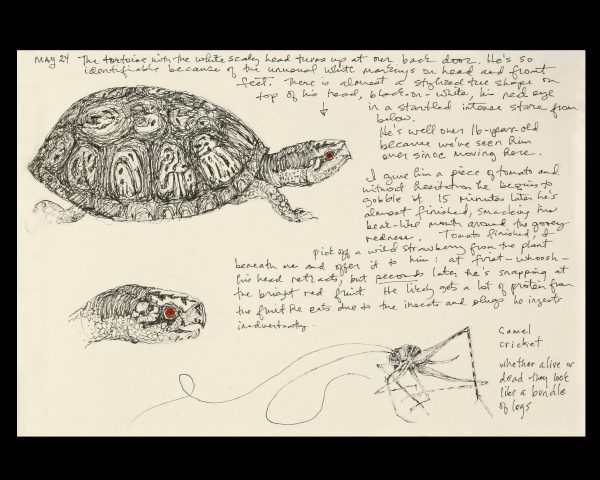 May 24 The tortoise with the white scaley head turns up at our back door. He's so
identifiable because of the unusual white markings on head and front
feet. There is almost a stylized tree shape on
top of his head, black-on-white, his red eye
in a startled intense stare from
below.
He's well over 16-year-old
because we've seen him
ever since moving here.
I give him a piece of tomato and
without hesitation he begins to
gobble it. 15 minutes later he's
almost finished, smacking his
beak-like mouth around the gooey
redness. Tomato finished, I
pick off a wild strawberry from the plant
beneath me and offer it to him: at first - whoosh -
his head retracts, but seconds later he's snapping at
the bright red fruit. He likely gets a lot of protein from
the fruit he eats due to the insects and slugs he ingests
inadvertently.
Camel
cricket
whether alive or
dead - they look
like a bundle
of legs